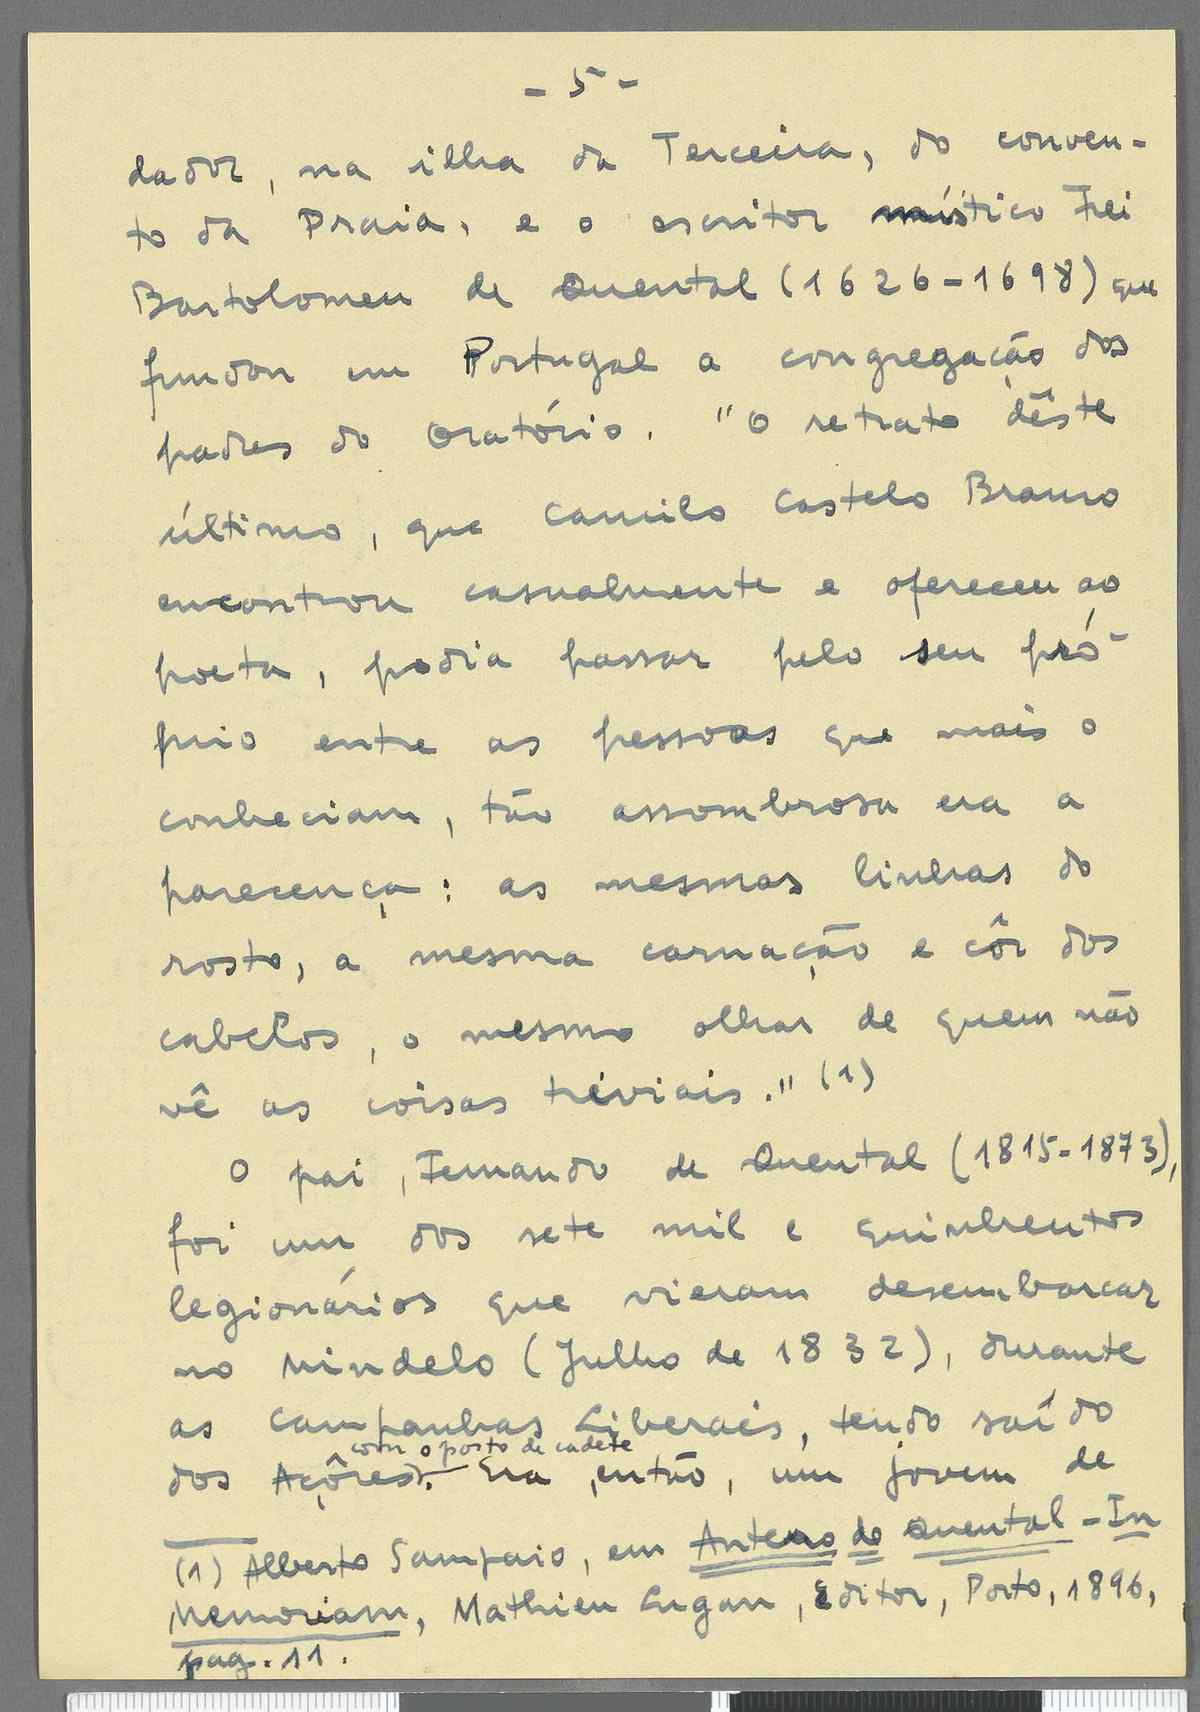 - 5 -
dador, na ilha da Terceira, do conven-
to da Praia, e o escritor místico Frei
Bartolomeu de Quental (1626-1698) que
fundou em Portugal a congregação dos
padres do Oratório. "O retrato dêste
último, que Camilo Castelo Branco
encontrou casualmente e ofereceu ao
poeta, podia passar pelo seu pró-
prio entre as pessoas que mais o
conheciam, tão assombrosa era a
parecença: as mesmas linhas do
rosto, a mesma carnação e côr dos
cabelos, o mesmo olhar de quem não
vê as coisas triviais." (1)
O pai, Fernando de Quental (1815-1873),
foi um dos sete mil e quinhentos
legionários que vieram desembarcar
no Mindelo (Julho de 1832), durante
as Campanhas Liberais, tendo saído
com o posto de cadete
dos Açôres. Era, então, um jovem de
(1) Alberto Sampaio, em Antero de Quental - In
Memoriam, Mathieu Lugan, Editor, Porto, 1896,
pag. 11.